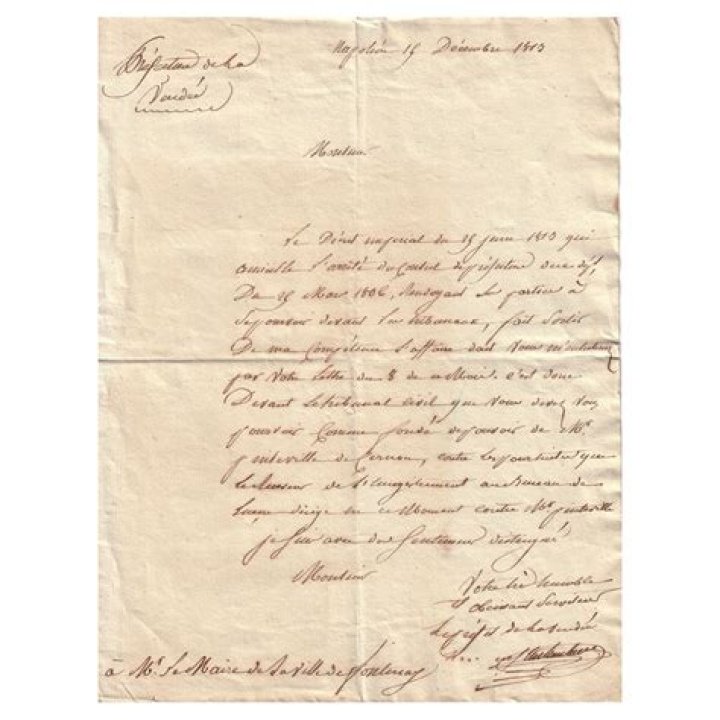 Napoléon 15 Décembre 1813
Préfecture de La
Vendée
Monsieur
Le Décret impérial du 15 juin 1813 qui
annulle l'arreté du conseil de préfecture
Du 15 Mars 1806, Renvoyant les parties à
Se pourvoir devant les tribunaux, fait Sortir
De ma Compétence l'affaire dont Vous m'entretenez
par Votre lettre du 8 de ce Mois. c'est donc
Devant le tribunal civil que Vous devez Vous
pourvoir Comme fondé de pouvoir de Mr.
pinteville de Cernon, contre les poursuites que
le Receveur de l'enregistrement au Bureau de
Luçon dirige en ce Moment contre Mr. pinteville
je Suis avec des Sentimens distingués
Monsieur
Votre très humble
& obéissant Serviteur
Le préfet de la Vendée
à Mr. Le Maire de la ville de fontenay